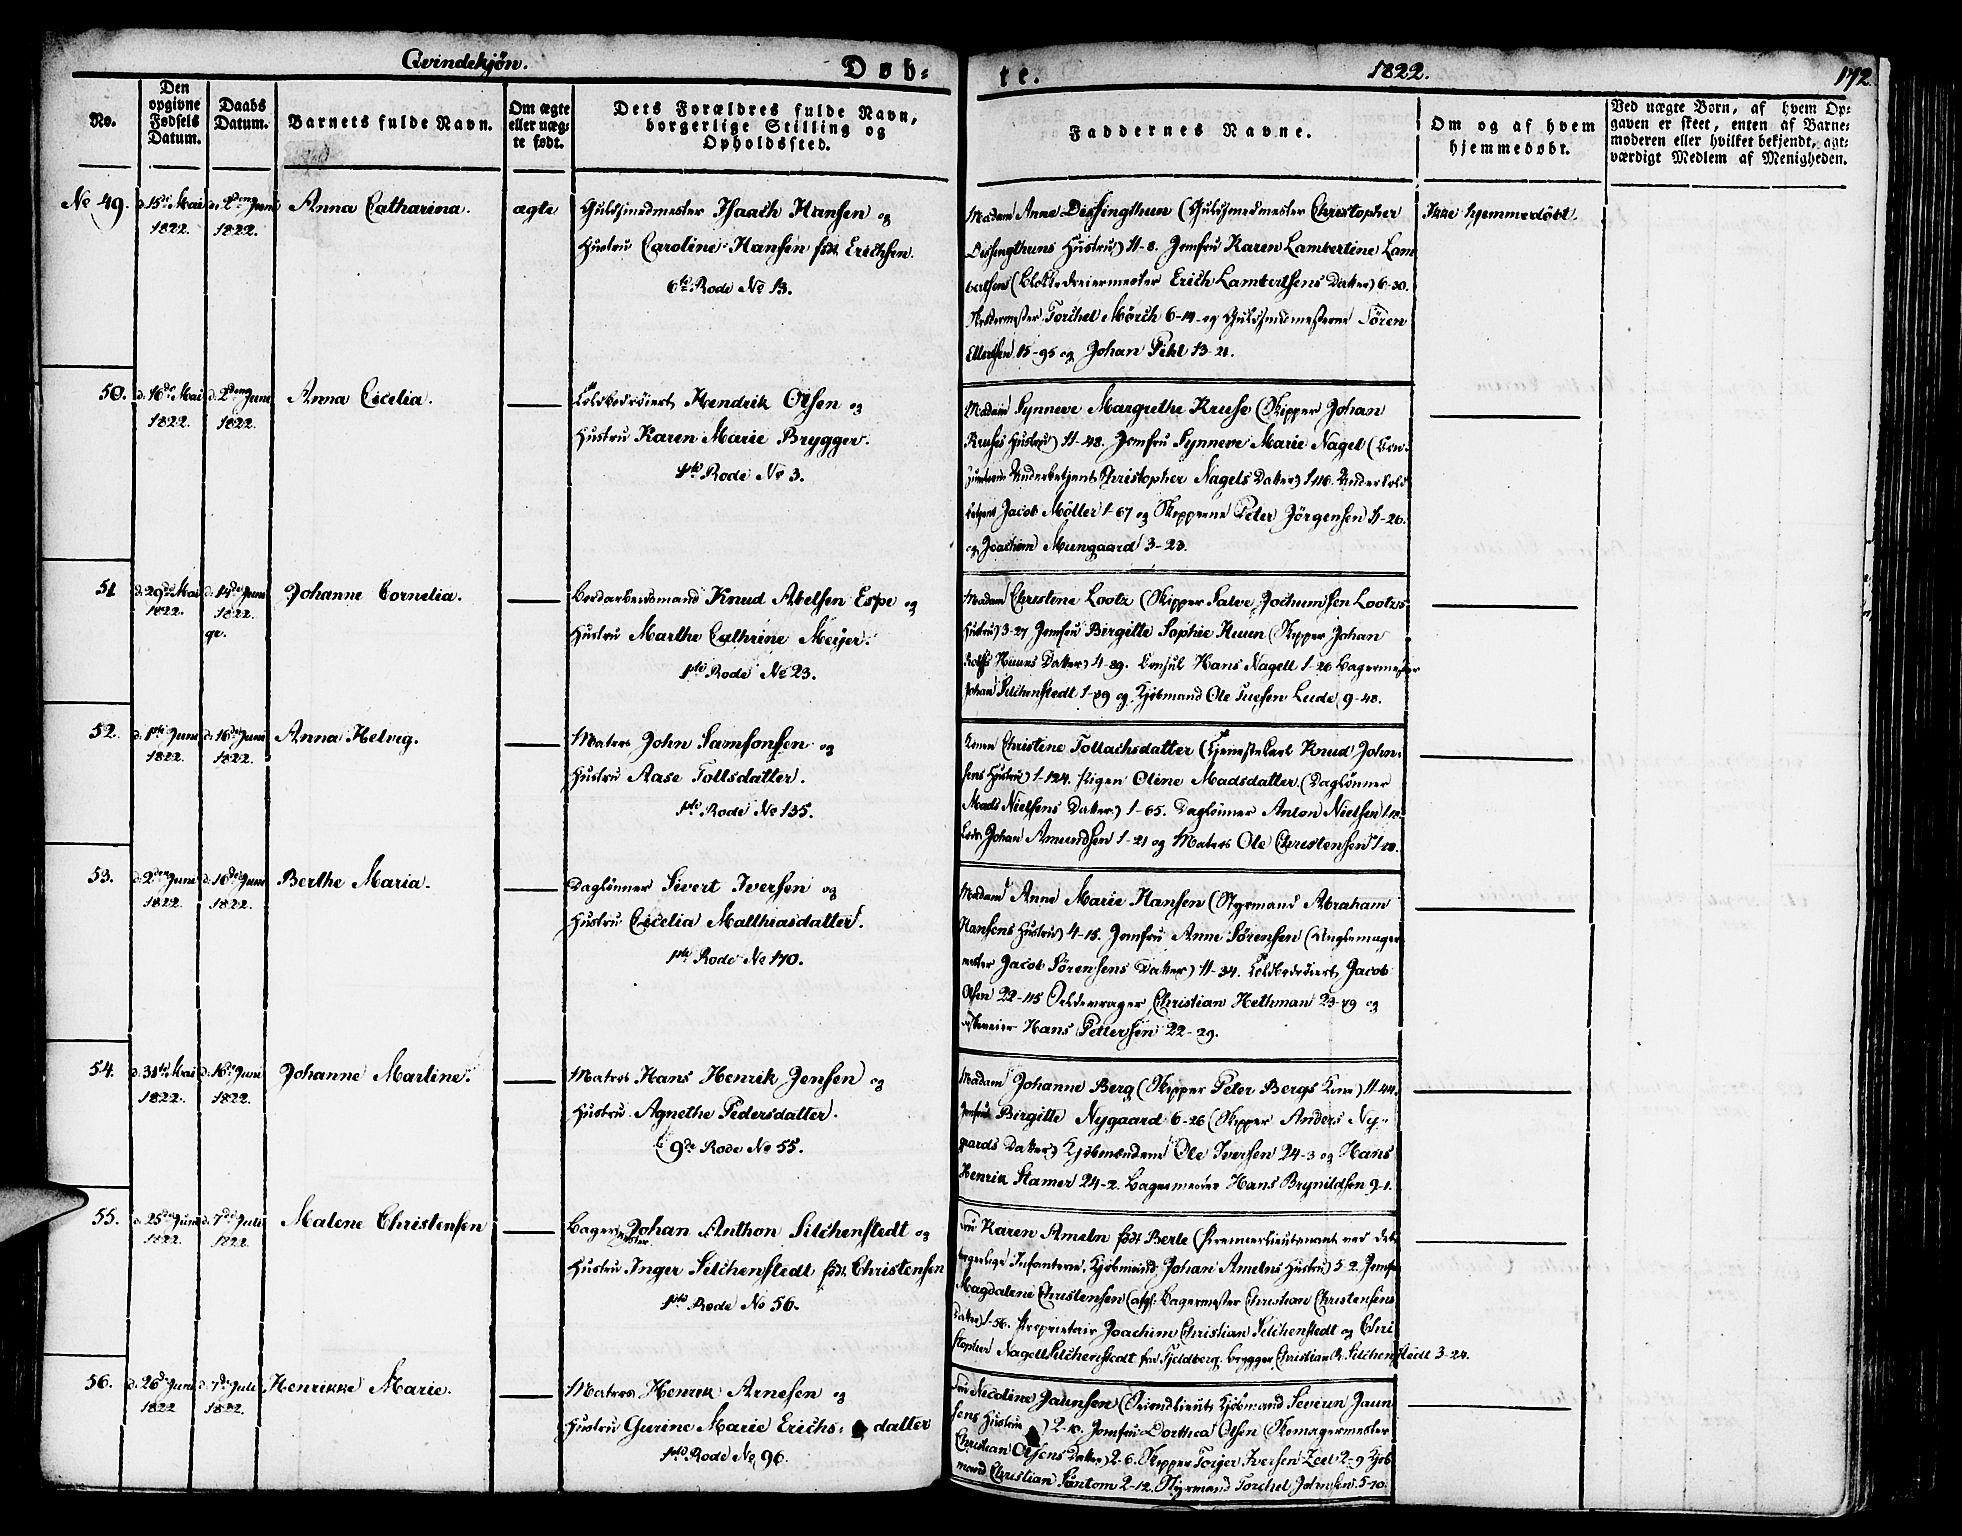 Qvindekjøn. Døb- te. 1822. 172
No.
Den opgivne Fødsels Datum.
Daabs Datum.
Barnets fulde Navn.
Om ægte eller uæg- te født.
Dets Forældres fulde Navn, borgerlige Stilling og Opholdssted.
Faddernes Navne.
Om og af hvem hjemmedøbt.
Ved uægte Børn, af hvem Op- gaven er skeet, enten af Barne- moderen eller hvilket bekjendt, agt- værdigt Medlem af Menigheden.
No 49. d. 15de Mai 1822. d. 2den Juni 1822. Anna Catharina. ægte
Guldsmedmester Isaach Hansen og
Hustru Caroline Hansen født Erichsen.
6te Rode No 13.
Madam Anne Dessingthun (Guldsmedmester Christopher
Dessingthuns Hustru) 11-8. Jomfru Karen Lambertine Lam
bertsens (Blokkedreiermester Erich Lambertsens Datter) 6-30.
Torchel Mörch 6-14 og Guldsmedmesterne Sören
Ellertsen 15-95 og Johan Pihl 13-21.
Ikke hjemmedöbt.
50. d. 16de Mai 1822. d. 2den Juni 1822. Anna Cecelia.
Hendrik Olsen og
Hustru Karen Marie Brygger.
1ste Rode No 3.
Madam Synneve Margrethe Kruse (Skipper Johan
Kruses Hustru) 11-48. Jomfru Synneve Marie Nagel (
Underbetjent Christopher Nagels Datter) 1-116.
Jacob Möller 1-67 og Skipperne Peter Jörgensen 11-26.
og Joachim Mungaard 3-23.
51 d. 29de Mai 1822. d. 14de Juni 1822. gr. Johanne Cornelia.
Bordarbeidsmand Knud Abelsen Espe og
Hustru Marthe Cathrine Meyer.
1ste Rode No 23.
Madam Christene Lootz (Skipper Salve Jochumsen Lootzs
Hustru) 3-27 Jomfru Birgitte Sophie Huun (Skipper Johan
Rolfs Huuns Datter) 4-89. Consul Hans Nagell 1-26 Bagermester
Johan Silchenstedt 1-89 og Kjöbmand Ole Tuesen Lude 9-48.
52. d. 1ste Juni 1822. d. 16de Juni 1822. Anna Helvig.
Matros John Samsonsen og
Hustru Aase Tollsdatter.
1ste Rode No 135.
Konen Christine Tollachsdatter (Tjenestekarl Knud John-
sens Hustru) 1-124. Pigen Oline Madsdatter. (Daglönner
Mads Nielsens Datter) 1-65. Daglönner Anton Nielsen
Johan Amundsen 1-21 og Matros Ole Christensen
53. d. 2den Juni 1822. d. 16de Juni 1822. Berthe Maria.
Daglönner Sivert Iversen og
Hustru Cecelia Matthiasdatter.
1ste Rode No 170.
Madam Anne Marie Hansen (Styrmand Abraham
Hansens Hustru) 4-15. Jomfru Anne Sörensen (
mester Jacob Sörensens Datter) 11-34. Jacob
Olsen 22-45 Christian Hethman 23-49 og
Hans Pettersen 22-29.
54. d. 31te Mai 1822. d. 16de Juni 1822. Johanne Martine.
Matros Hans Henrik Jensen og
Hustru Agnethe Pedersdatter.
9de Rode No 55.
Madam Johanne Berg (Skipper Peter Bergs Kone) 11-44.
Jomfrue Birgitte Nygaard 6-26 (Skipper Anders Ny-
gaards Datter) Kjöbmændene Ole Iversen 24-3 og Hans
Henrik Stamer 24-2. Hans Brynildsen 9-1.
55. d. 25de Juni 1822. d. 7de Juli 1822. Malene Christensen
Bagermester Johan Anthon Silchenstedt og
Hustru Inger Silchenstedt født Christensen
1ste Rode No 56.
Fru Karen Ameln født Berle (Premierlieutenant ved det
borgerlige Infanterie, Kjöbmand Johan Amelns Hustru) 5-2. Jomfru
Magdalene Christensen (afg: Bagermester Christian Christensens
Datter) 1-56. Proprietair Joachim Christian Silchenstedt og Chri
stopher Nagell Silchenstedt fra Fjeldberg, Brygger Christian R. Silchenstedt 3-24.
56. d. 26de Juni 1822 d. 7de Juli 1822. Henrikke Marie.
Matros Henrik Arnesen og
Hustru Gurine Marie Erichs: datter
1ste Rode No 96.
Fru Nicoline Jaunsen ( Kjöbmand Severin Jaun
sens Hustrue) 2-10. Jomfru Dorthea Olsen (Skomagermester
Christian Olsens Datter) 2-6. Skipper Torjer Iversen Zeel 2-9 Kjöb
mand Christian Sontom 2-12. Styrmand Torchel Johnsen 5-70.